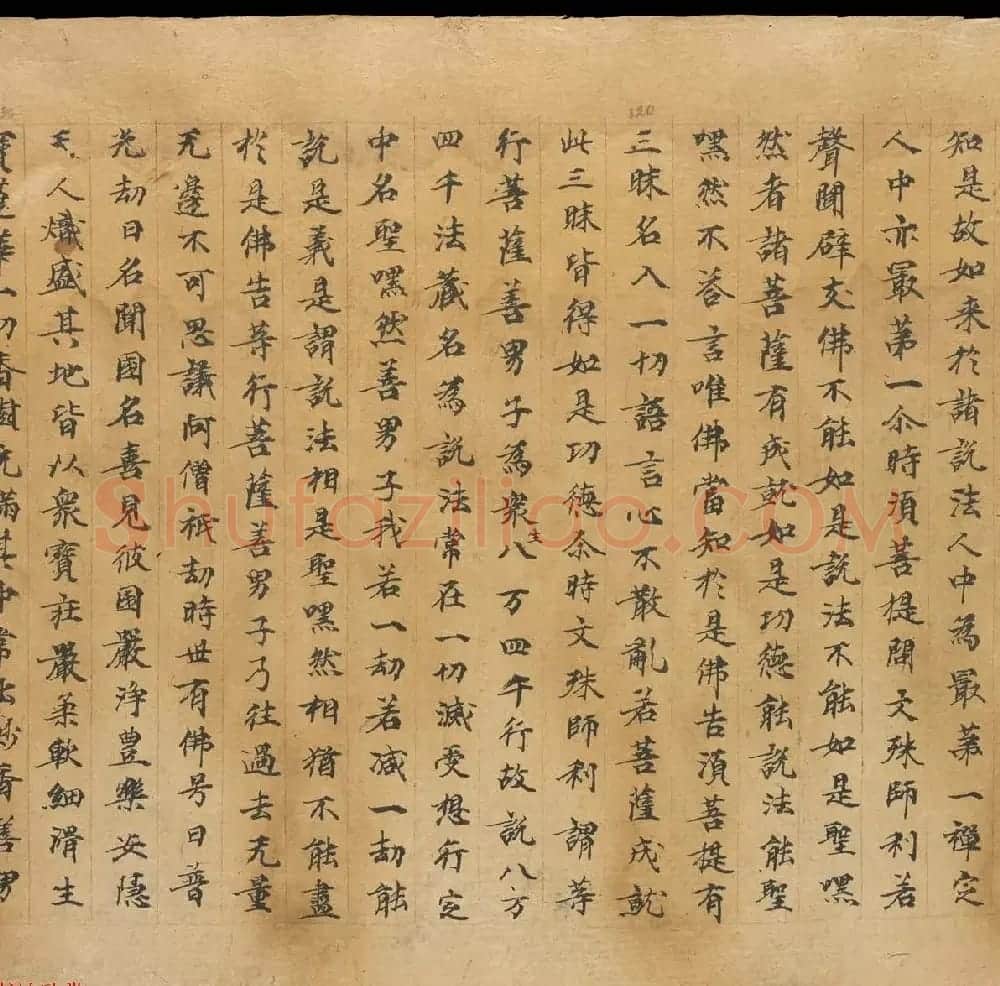 知是故如来於諸説法人中為最苐一禪定
人中亦最苐一尒時須菩提聞文殊師利若
聲聞辟支佛不能如是説法不能如是聖嘿
然者諸菩薩有成就如是功德能説法能聖
嘿然不荅言唯佛當知於是佛告須菩提有
三昧名入一切語言心不散亂若菩薩成就
此三昧皆得如是功德尒時文殊師利謂等
行菩薩善男子為衆生八万四千行故説八万
四千法藏名為説法常在一切滅受想行定
中名聖嘿然善男子我若一劫若減一劫能
説是義是謂説法相是聖嘿然相猶不能盡
於是佛告等行菩薩善男子乃往過去无量
无邊不可思議阿僧祇劫時世有佛号曰普
光劫曰名聞國名喜見彼國嚴浄豊樂安隱
天人熾盛其地皆以衆寶莊嚴柔軟細滑生
寶蓮華一切香樹充滿其中常出妙香善男
120
Shufaziliao.COM